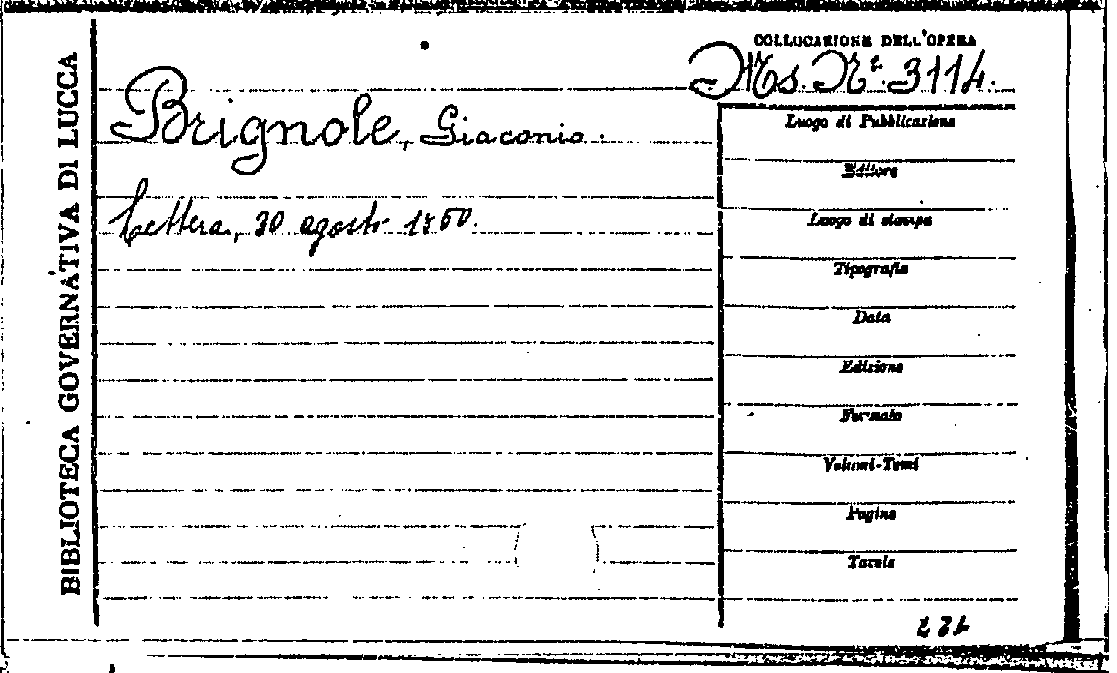 BIBLIOTECA GOVERNATIVA DI LUCCA
COLLOCAZIONE DELL'OPERA
Ms. Nº. 3114.
Brignole, Giacomo.
Lettera, 30 agosto 1760.
Luogo di Pubblicazione
Editore
Luogo di stampa
Tipografia
Data
Edizione
Formato
Volumi-Tomi
Pagine
Tavole